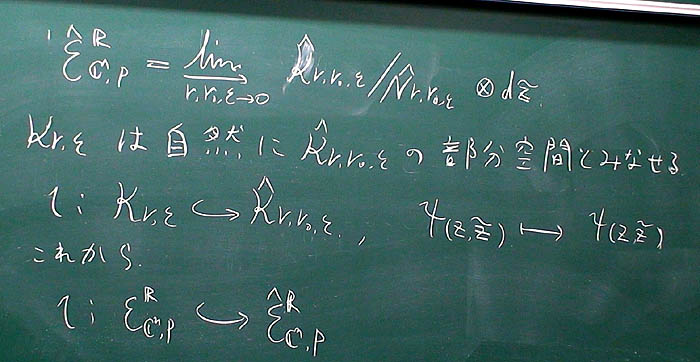 \hat{ℰ}^ℝ_{ℂⁿ,p} = \varinjlim_{r,r₀,ε→0} \hat{K}_{r,r₀,ε} / \hat{N}_{r,r₀,ε} ⊗ d\tilde{z}.
K_{r,ε} は自然に \hat{K}_{r,r₀,ε} の部分空間とみなせる
ι: K_{r,ε} ↪ \hat{K}_{r,r₀,ε}, ψ(z,\tilde{z}) ↦ ψ(z,\tilde{z})
これから.
ι: ℰ^ℝ_{ℂⁿ,p} ↪ \hat{ℰ}^ℝ_{ℂⁿ,p}